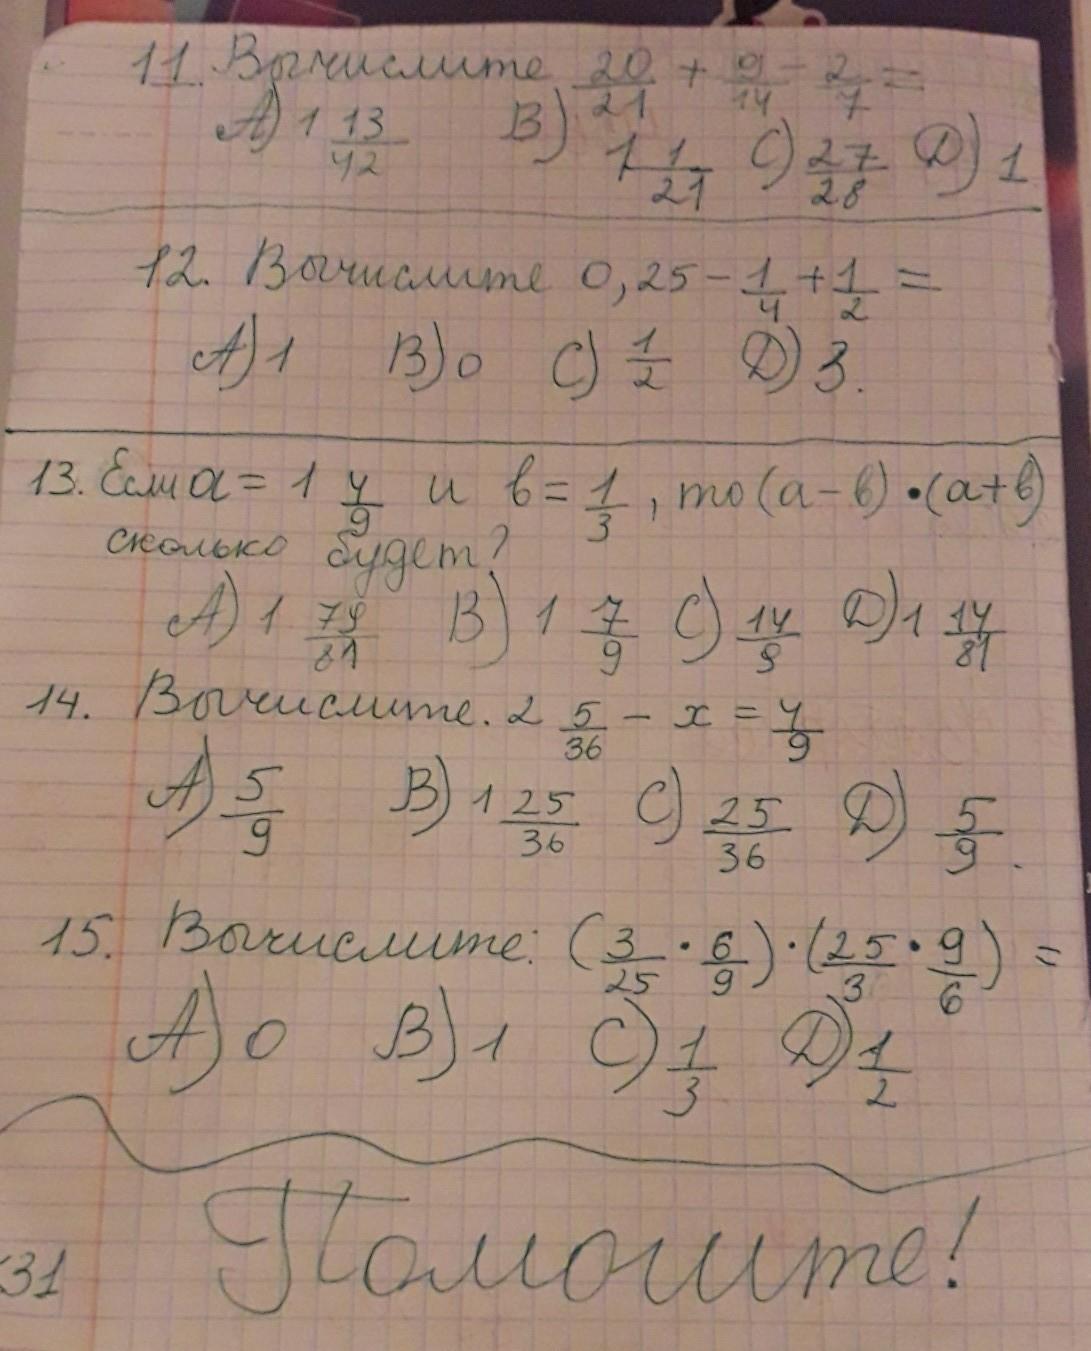 11. Вычислите 20/21 + 9/14 - 2/7 =
A) 1 13/42 B) 1 1/21 C) 27/28 D) 1
12. Вычислите 0,25 - 1/4 + 1/2 =
A) 1 B) 0 C) 1/2 D) 3.
13. Если a = 1 4/9 и b = 1/3, то (a - b) • (a + b)
сколько будет?
A) 1 79/81 B) 1 7/9 C) 14/9 D) 1 14/81
14. Вычислите. 2 5/36 - x = 4/9
A) 5/9 B) 1 25/36 C) 25/36 D) 5/9.
15. Вычислите: (3/25 • 6/9) • (25/3 • 9/6) =
A) 0 B) 1 C) 1/3 D) 1/2
Помогите!
31